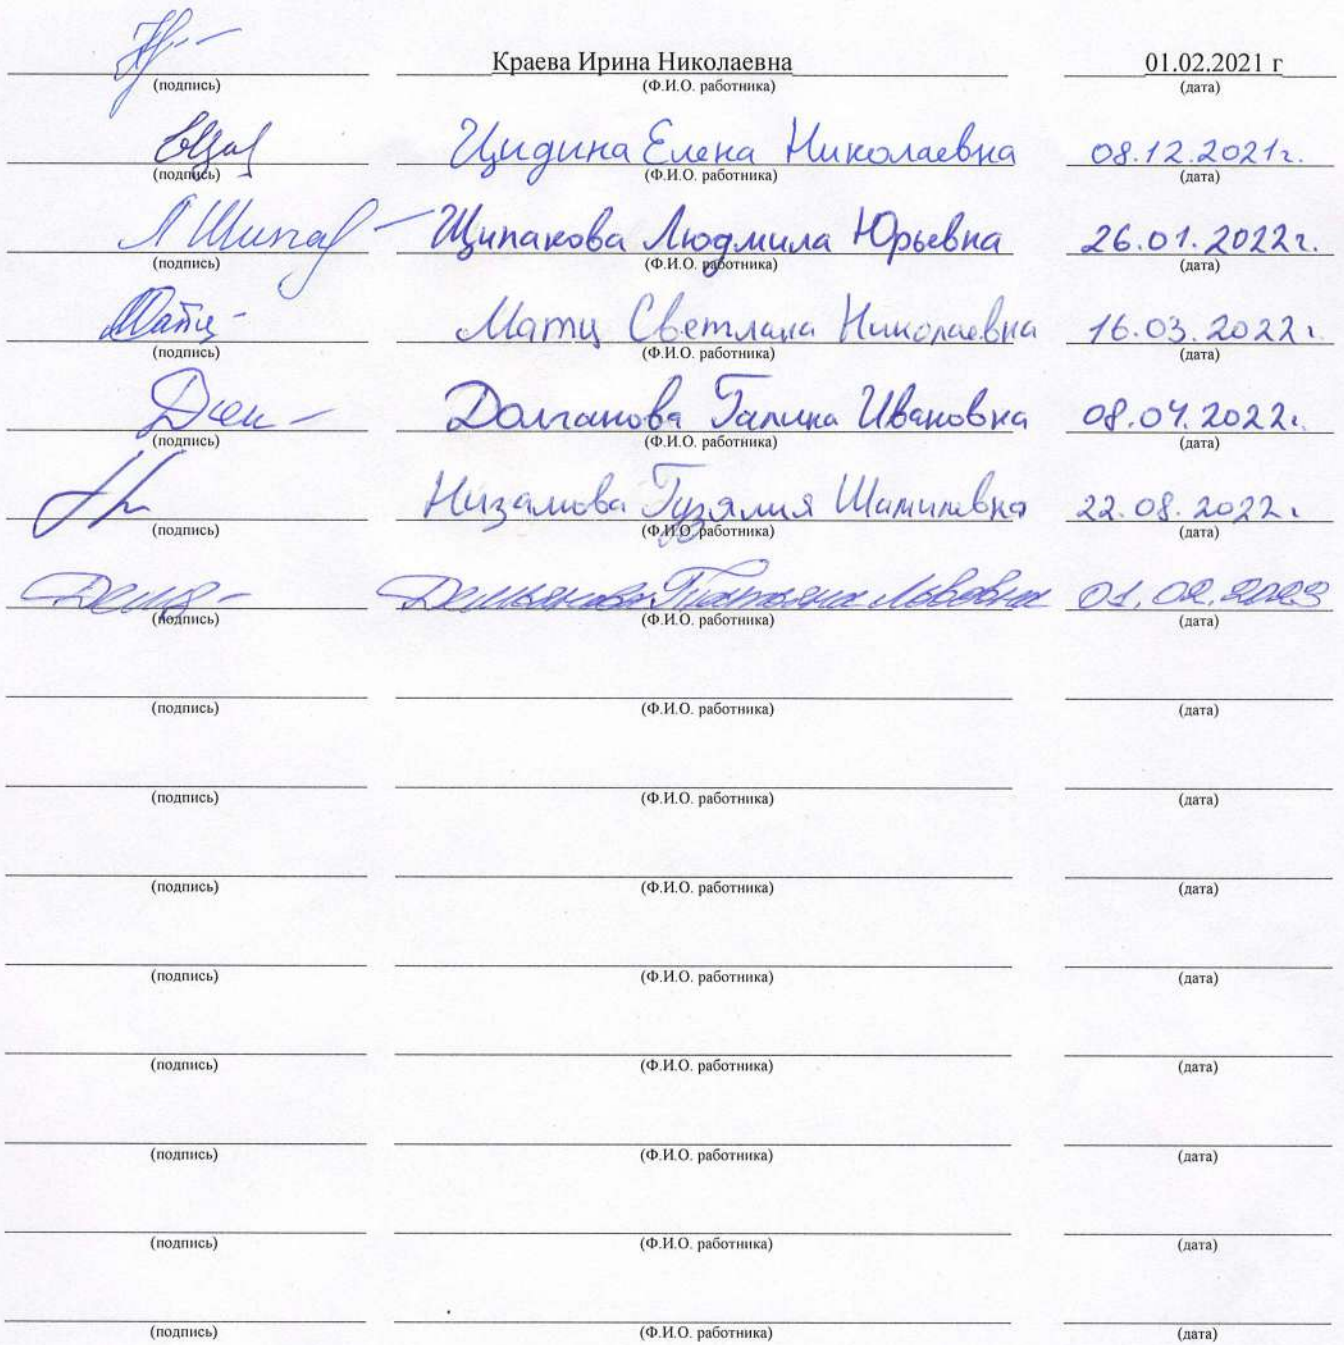 Краева Ирина Николаевна 01.02.2021 г
(подпись) (Ф.И.О. работника) (дата)
Цидина Елена Николаевна 08.12.2021г.
(подпись) (Ф.И.О. работника) (дата)
Щипакова Людмила Юрьевна 26.01.2022г.
(подпись) (Ф.И.О. работника) (дата)
Матц Светлана Николаевна 16.03.2022г
(подпись) (Ф.И.О. работника) (дата)
Долганова Галина Ивановна 08.04.2022г.
(подпись) (Ф.И.О. работника) (дата)
Низамова Гузялия Шамилевна 22.08.2022г.
(подпись) (Ф.И.О. работника) (дата)
Демьянова Татьяна Львовна 01.02.2023
(подпись) (Ф.И.О. работника) (дата)
(подпись) (Ф.И.О. работника) (дата)
(подпись) (Ф.И.О. работника) (дата)
(подпись) (Ф.И.О. работника) (дата)
(подпись) (Ф.И.О. работника) (дата)
(подпись) (Ф.И.О. работника) (дата)
(подпись) (Ф.И.О. работника) (дата)
(подпись) (Ф.И.О. работника) (дата)
(подпись) (Ф.И.О. работника) (дата)